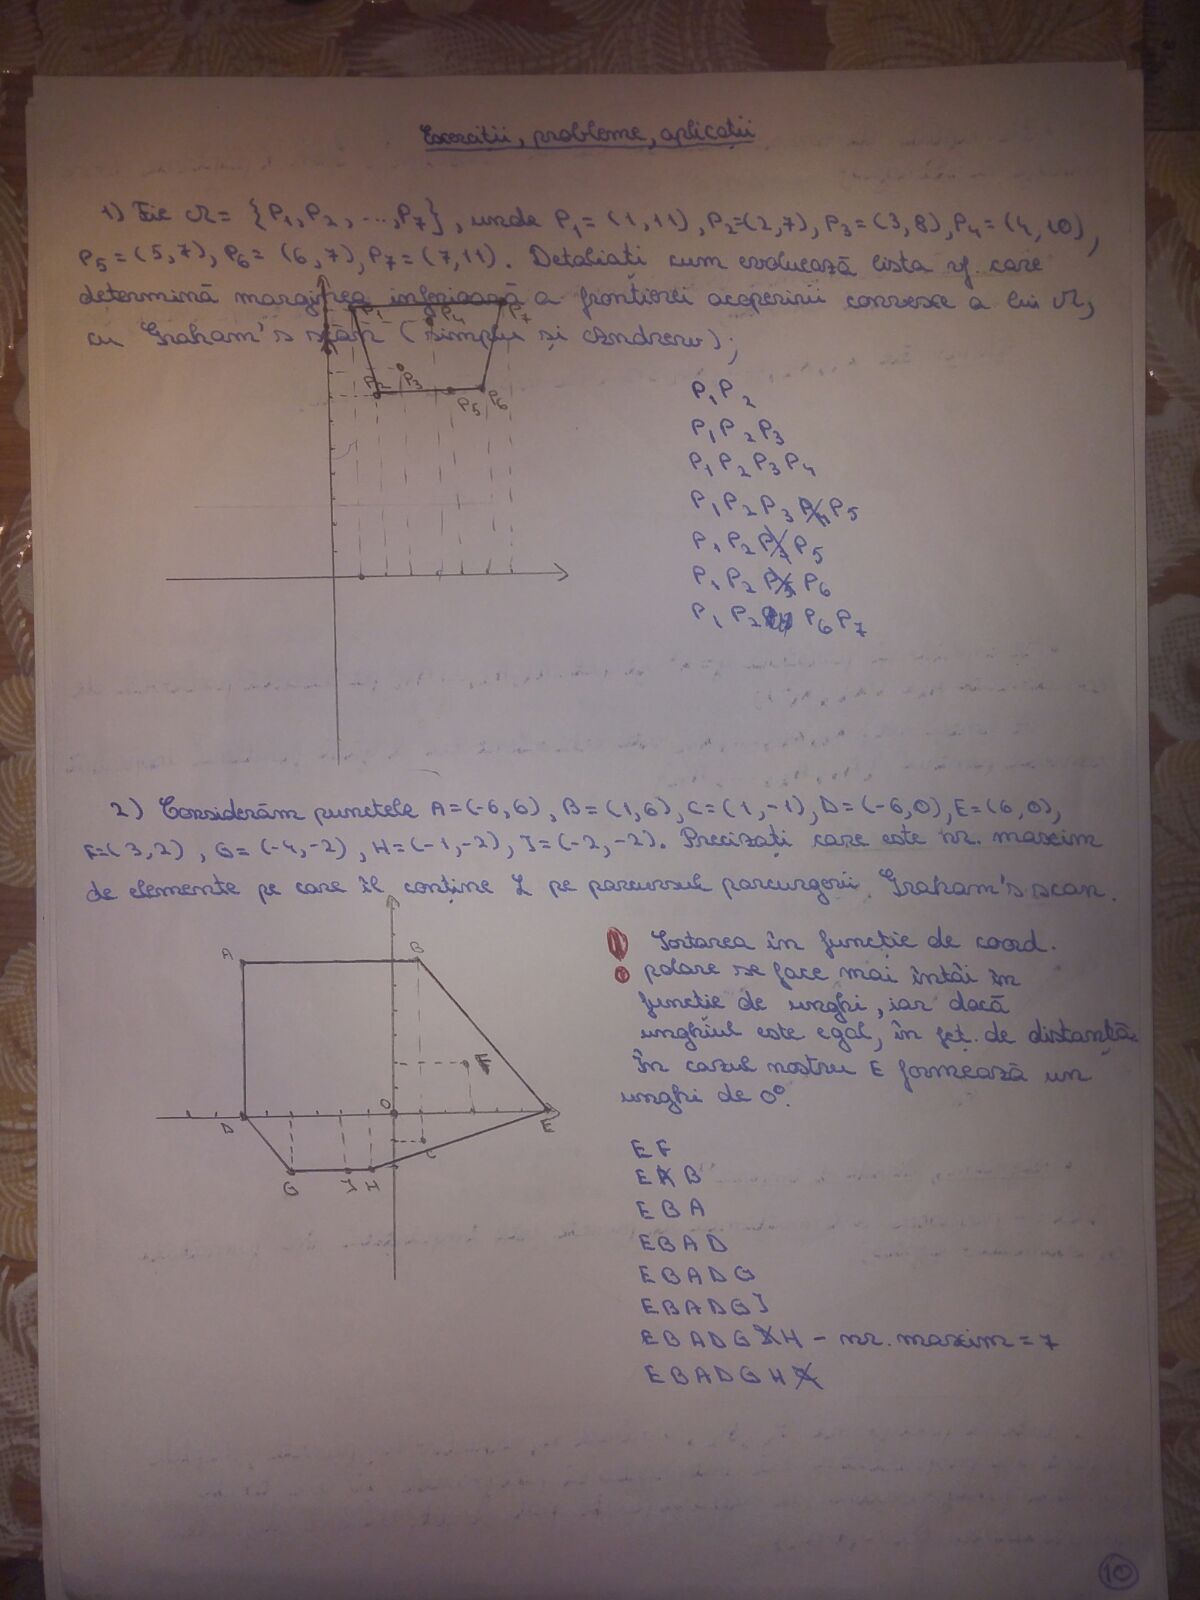 Exerciții, probleme, aplicații
1) Fie M = {P1, P2, ..., P7}, unde P1 = (1,11), P2=(2,7), P3=(3,8), P4=(4,10),
P5=(5,7), P6=(6,7), P7=(7,11). Detaliați cum evoluează lista vf. care
determină marginea inferioară a frontierei acoperirii convexe a lui M,
cu Graham's scan (simplu și Andrew);
P1 P4 P7
P2 P3 P5 P6
P1 P2
P1 P2 P3
P1 P2 P3 P4
P1 P2 P3 P4 P5
P1 P2 P3 P5
P1 P2 P5 P6
P1 P2 P6 P7
2) Considerăm punctele A=(-6,6), B=(1,6), C=(1,-1), D=(-6,0), E=(6,0),
F=(3,2), G=(-4,-2), H=(-1,-2), I=(-2,-2). Precizați care este nr. maxim
de elemente pe care îl conține L pe parcursul parcurgerii Graham's scan.
A B
F
D O E
C
G I H
! Sortarea în funcție de coord.
polare se face mai întâi în
funcție de unghi, iar dacă
unghiul este egal, în fct. de distanță.
În cazul nostru E formează un
unghi de 0°.
E F
E F B
E B A
E B A D
E B A D G
E B A D G I
E B A D G I H - nr. maxim = 7
E B A D G H C
10